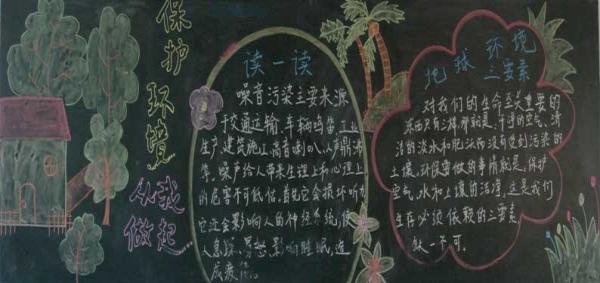 保护环境
从我做起
读一读
噪音污染主要来源
交通运输,车辆鸣笛,工业
生产建筑施工,高音喇叭,人声鼎沸
等,噪声给人带来生理上和心理上
的危害不可低估.首先它会损坏听力
它还会影响人的神经系统,使
人急躁、易怒,影响睡眠,造
成疲倦
地球环境
三要素
对我们的生命至关重要的
东西只有三样那就是:干净的空气、清
洁的淡水和肥沃而没有受到污染的
土壤.环保要做的事情就是,保护
空气,水和土壤的洁净,这是我们
生存必须依赖的三要素
缺一不可.